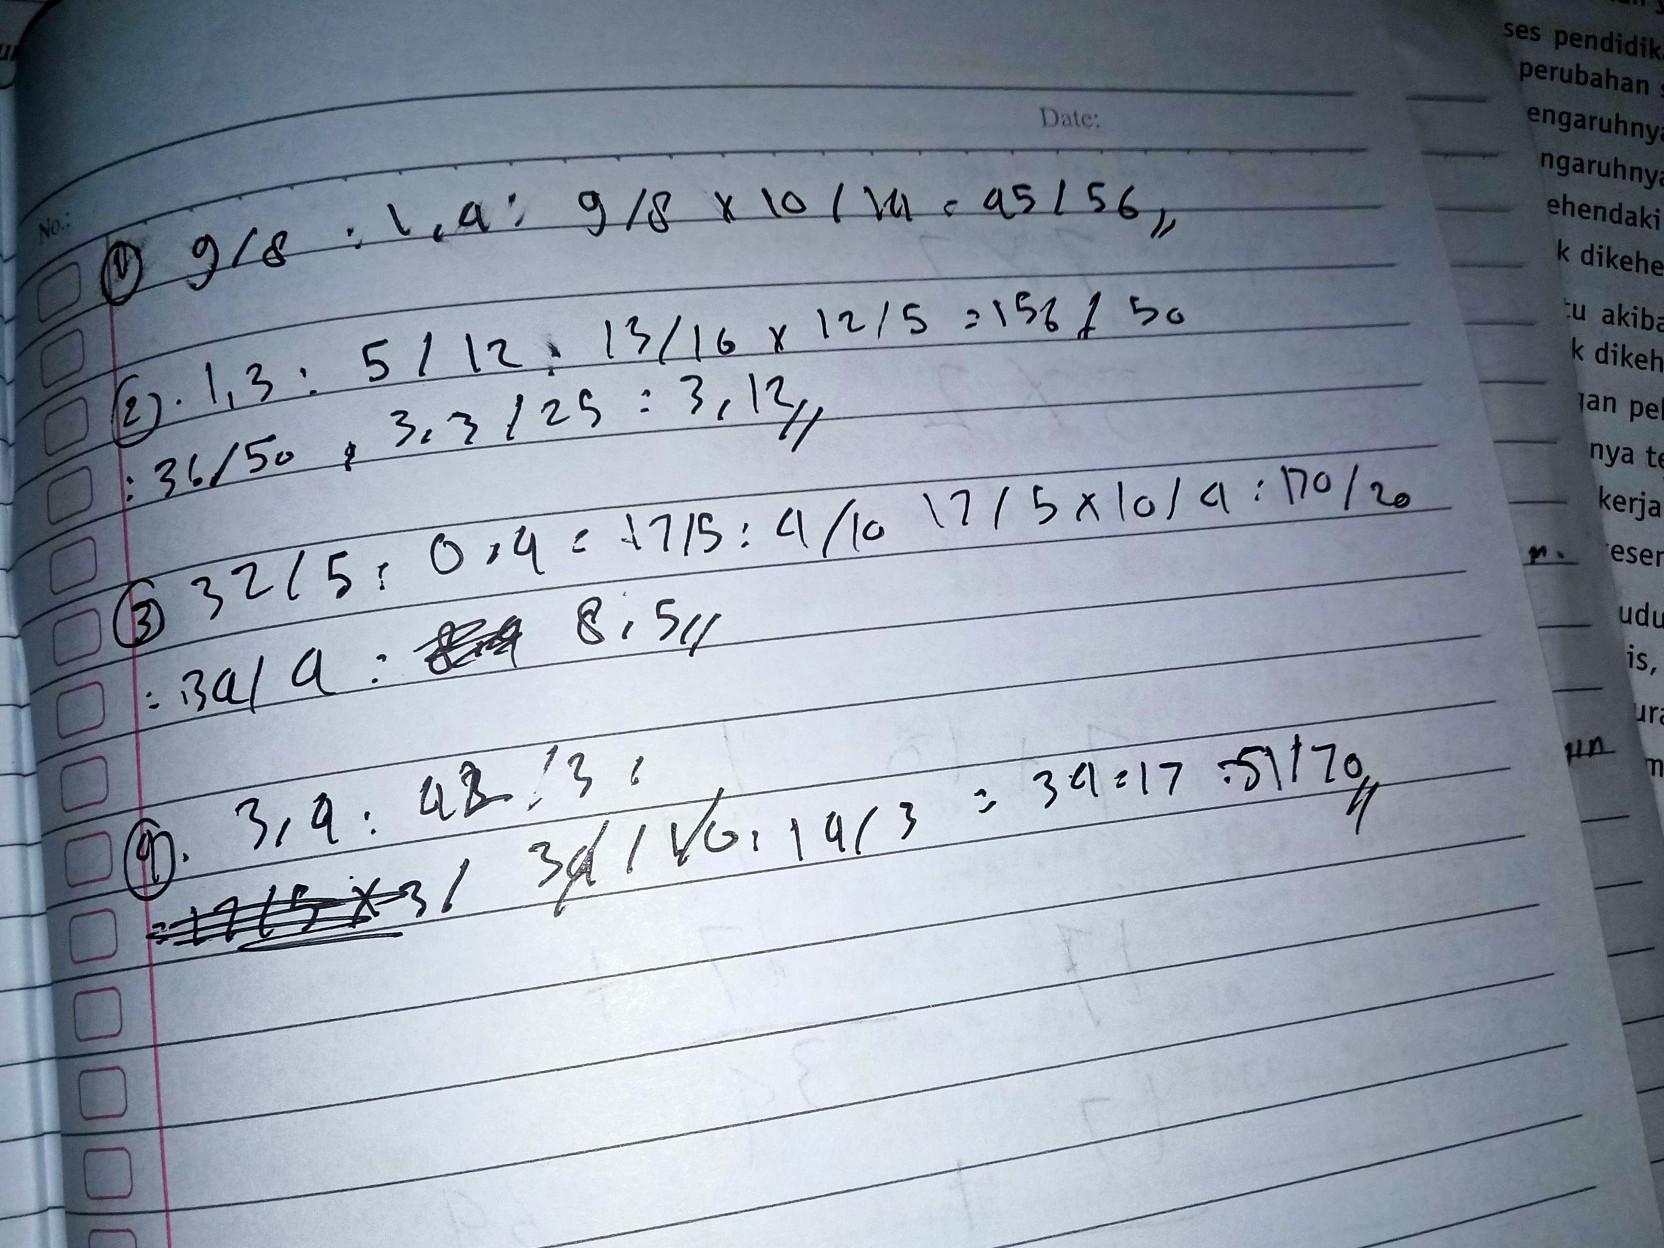 No.:
Date:
① 9/8 : 1,4 : 9/8 x 10/14 = 45/56 //
②. 1,3 : 5/12 : 13/10 x 12/5 = 156/50
: 36/50 , 3.3/25 : 3,12 //
③ 32/5 : 0,4 = 17/5 : 4/10 17/5 x 10/4 : 170/20
: 34/4 : 8,5 //
④. 3,4 : 42/3 :
34/10 : 14/3 = 34 : 17 : 51/70 //
ses pendidik
perubahan
engaruhnya
ngaruhnya
ehendaki
k dikehe
tu akiba
k dikeh
gan pel
nya te
kerja
n. eser
udu
is,
ura
un